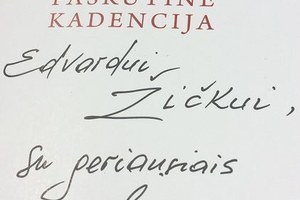 PASKUTINĖ
KADENCIJA
Edvardui
Žičkui,
su geriausiais